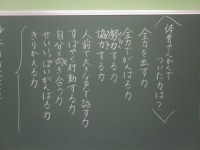 体育さいかいで
ついた力は?
全力を出す力
全力でがんばる力
努力する力
協力する力
人前で大きな声で話す力
すばやく行動する力
自分と向き合う力
せいいっぱいがんばる力
きりかえる力